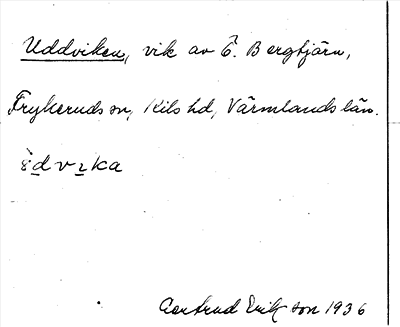 Uddviken, vik av Ö. Bergtjärn,
Frykeruds sn, Kils hd, Värmlands län.
Gertrud Erikson 1936